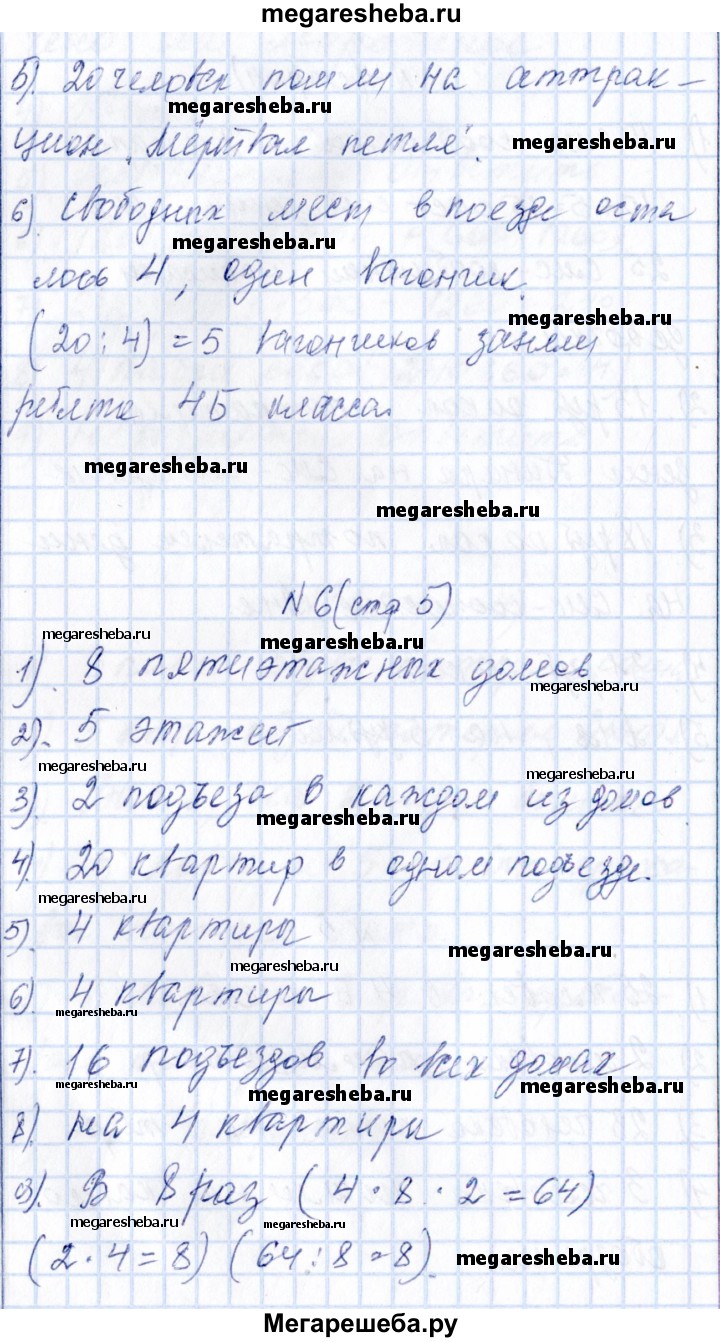 megaresheba.ru
5). 20 человек пошли на аттрак-
megaresheba.ru
цион "Мёртвая петля".
megaresheba.ru
6). Свободных мест в поезде оста
megaresheba.ru
лось 4, один вагончик.
megaresheba.ru
(20:4)=5 вагончиков заняли
ребята 4Б класса.
megaresheba.ru
megaresheba.ru
N 6 (стр 5)
megaresheba.ru
1). 8 пятиэтажных домов
megaresheba.ru
2). 5 этажей
megaresheba.ru
megaresheba.ru
3). 2 подъеза в каждом из домов.
megaresheba.ru
4). 20 квартир в одном подъезде.
megaresheba.ru
5). 4 квартиры
megaresheba.ru
megaresheba.ru
6). 4 квартиры
megaresheba.ru
7). 16 подъездов во всех домах
megaresheba.ru
megaresheba.ru
8). на 4 квартиры
9). В 8 раз (4·8·2=64)
megaresheba.ru
megaresheba.ru
(2·4=8) (64:8=8).
megaresheba.ru
Мегарешеба.ру